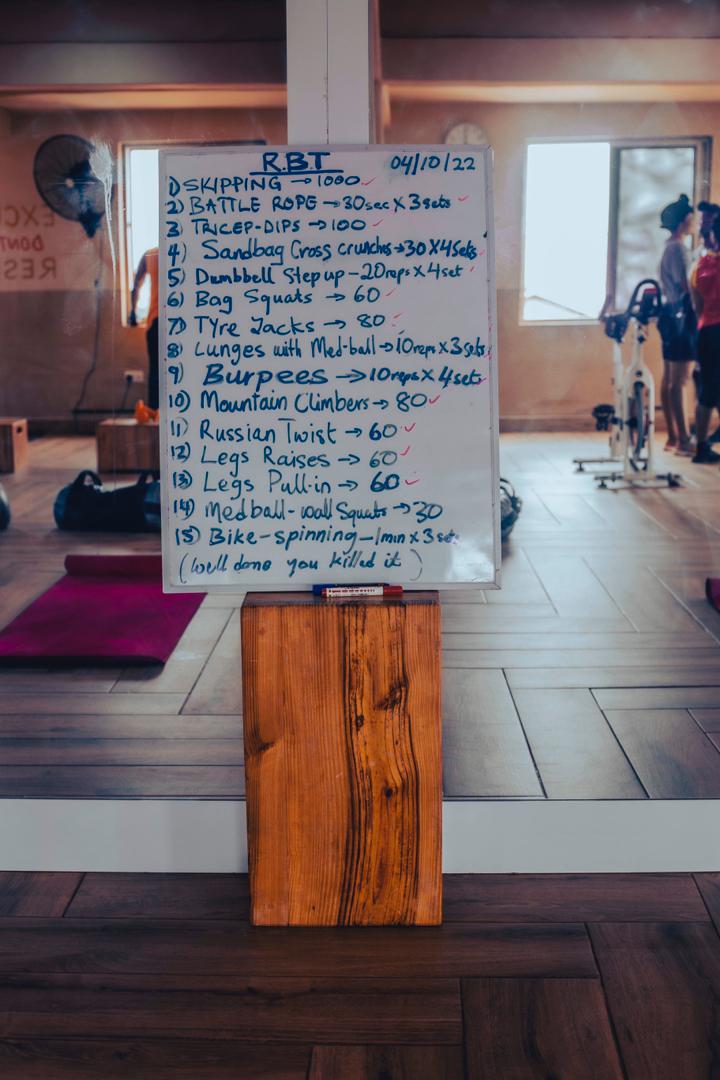 R.B.T 04/10/22
1) SKIPPING → 1000 ✓
2) BATTLE ROPE → 30sec X 3sets ✓
3) TRICEP-DIPS → 100 ✓
4) Sandbag Cross crunches → 30 X 4Sets
5) Dumbbell Step up - 20reps X 4set ✓
6) Bag Squats → 60 ✓
7) TYre Jacks → 80 ✓
8) Lunges with Med-ball → 10reps X 3sets
9) Burpees → 10reps X 4sets
10) Mountain Climbers → 80 ✓
11) Russian Twist → 60 ✓
12) Legs Raises → 60 ✓
13) Legs Pull-in → 60 ✓
14) Medball-wall Squats → 30
15) Bike-spinning - 1min x 3sets
(well done you killed it )